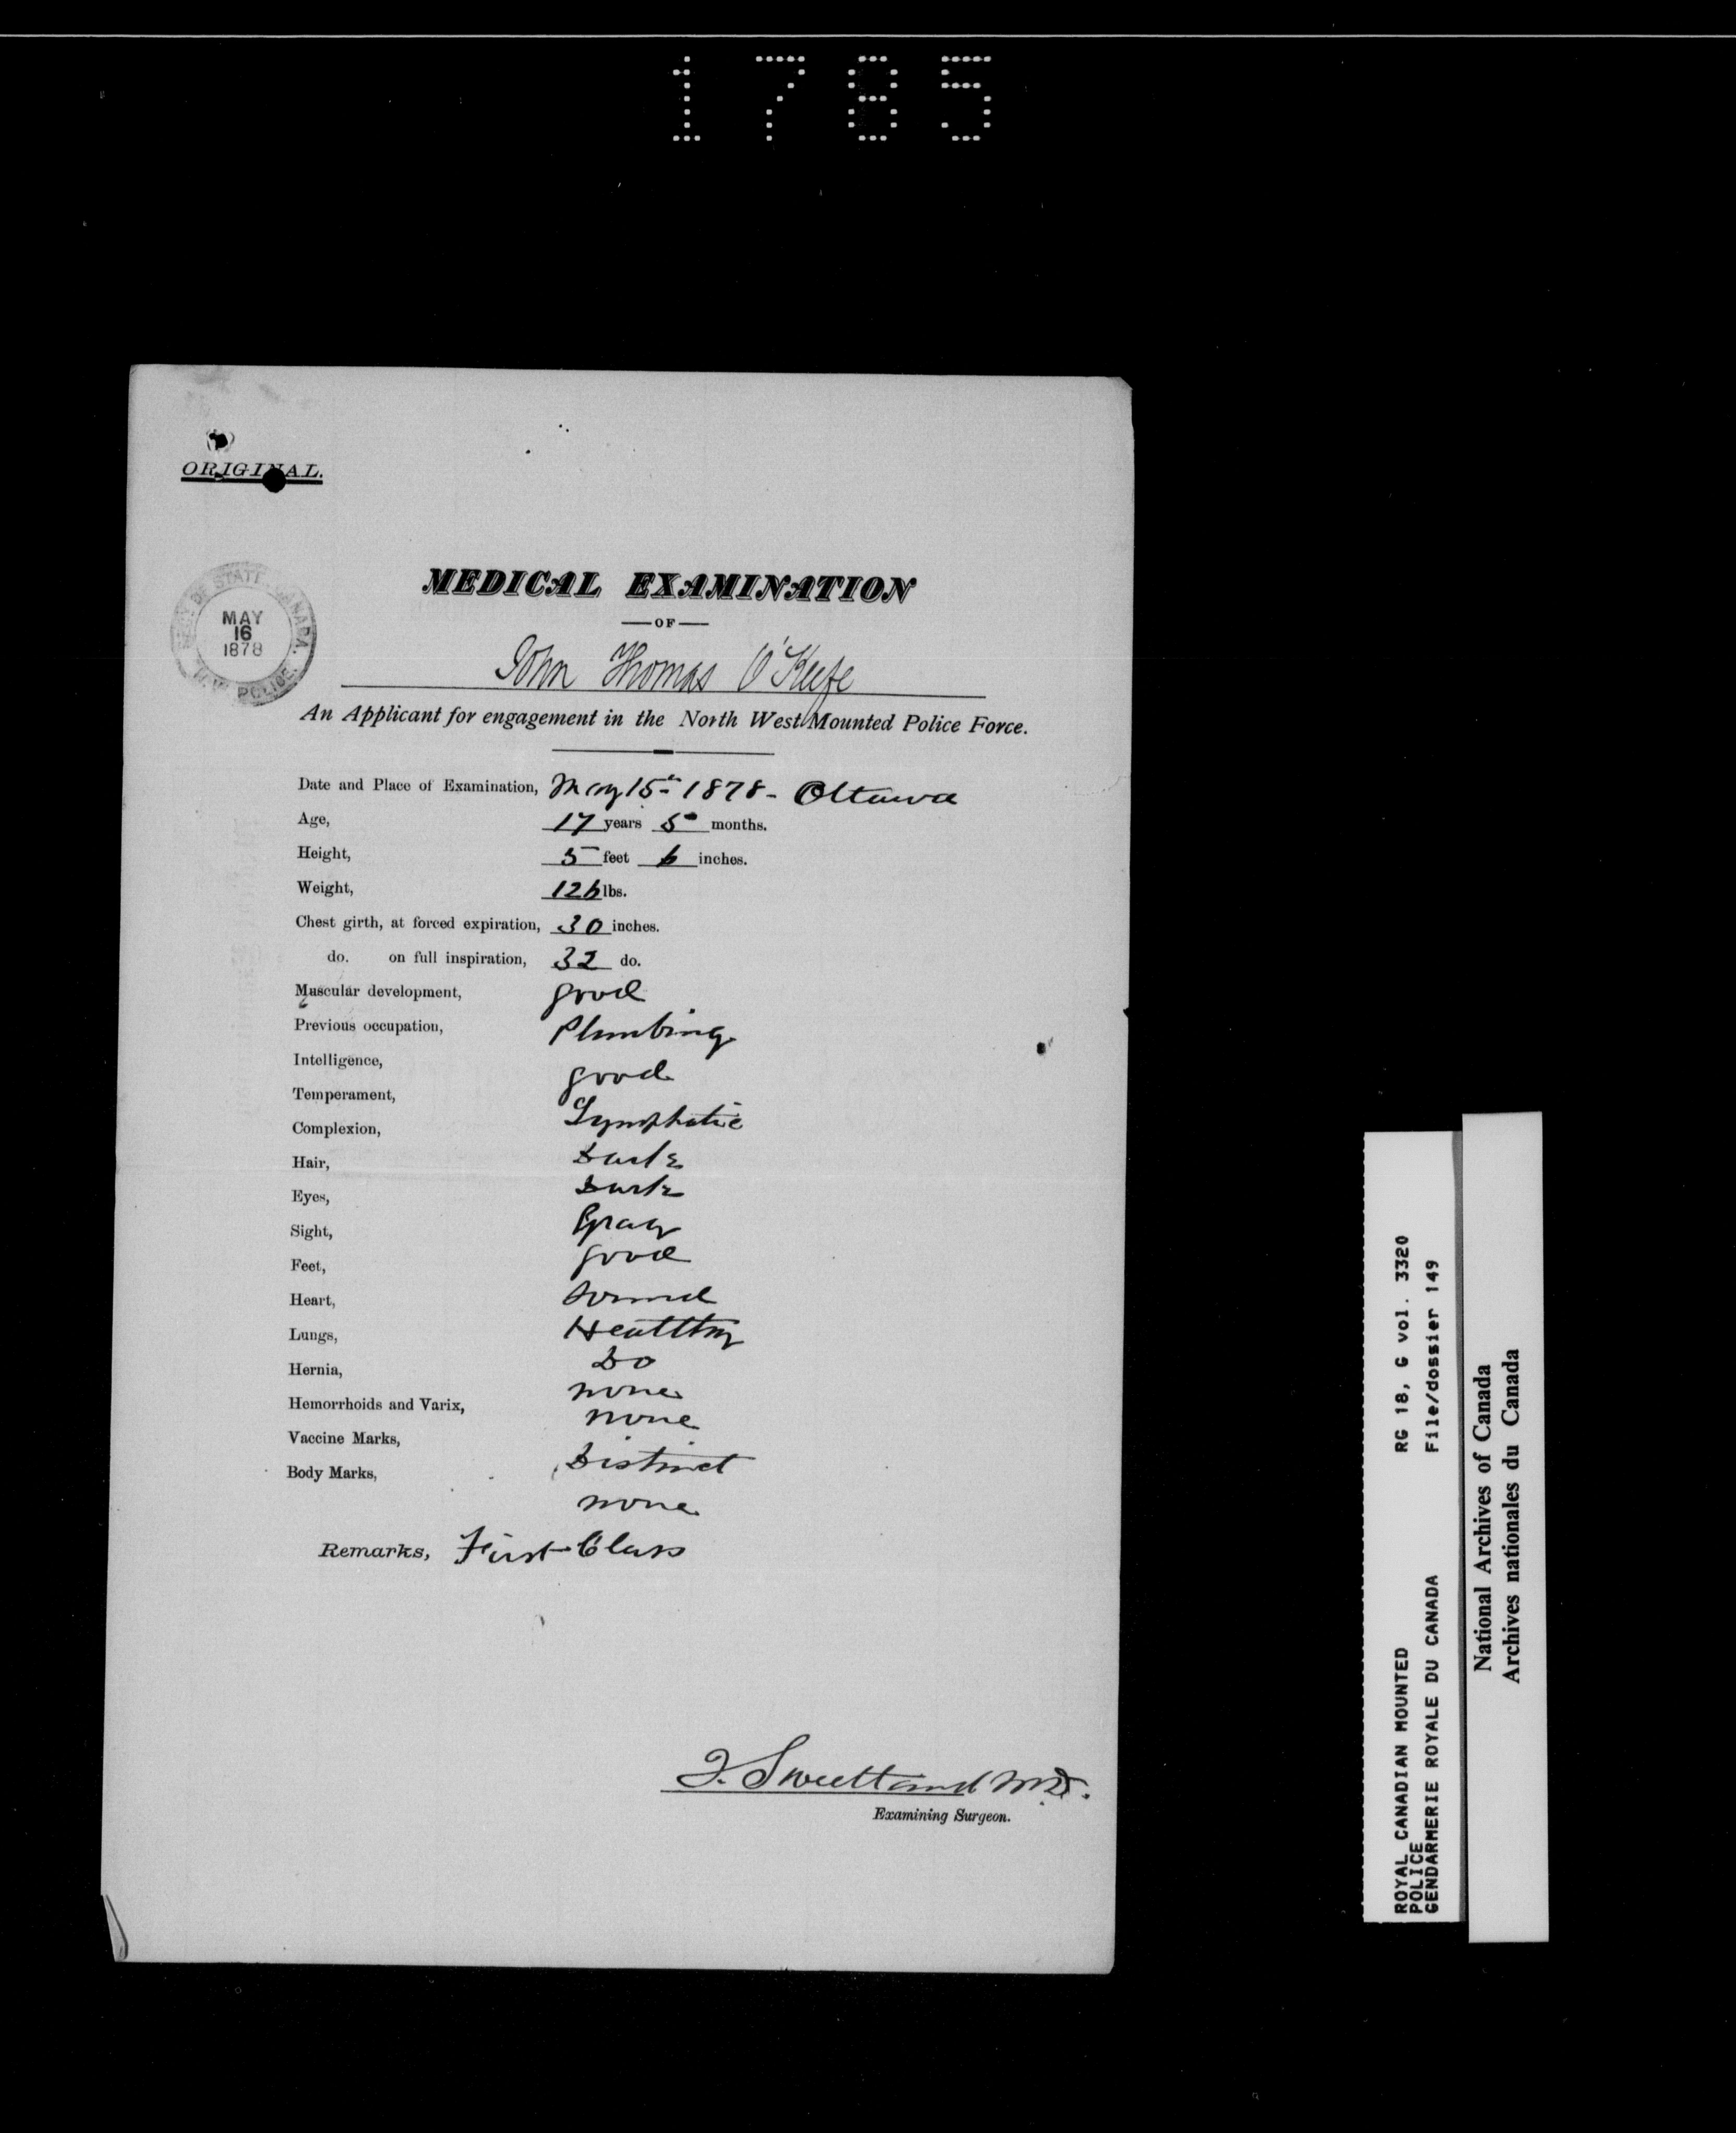 1785
ORIGINAL.
SECY. OF STATE, CANADA.
MAY
16
1878
N.W. POLICE.
MEDICAL EXAMINATION
—OF—
John Thomas O'Keefe
An Applicant for engagement in the North West Mounted Police Force.
Date and Place of Examination, May 15th 1878 - Ottawa
Age, 17 years 5 months.
Height, 5 feet 6 inches.
Weight, 126 lbs.
Chest girth, at forced expiration, 30 inches.
do. on full inspiration, 32 do.
Muscular development, good
Previous occupation, Plumbing
Intelligence, good
Temperament, Lymphatic
Complexion, Dark
Hair, Dark
Eyes, Gray
Sight, good
Feet, Sound
Heart, Healthy
Lungs, Do
Hernia, none
Hemorrhoids and Varix, none
Vaccine Marks, Distinct
Body Marks, none
Remarks, First Class
J. Sweetland M.D.
Examining Surgeon.
ROYAL CANADIAN MOUNTED POLICE
GENDARMERIE ROYALE DU CANADA
RG 18, G vol. 3320
File/dossier 149
National Archives of Canada
Archives nationales du Canada